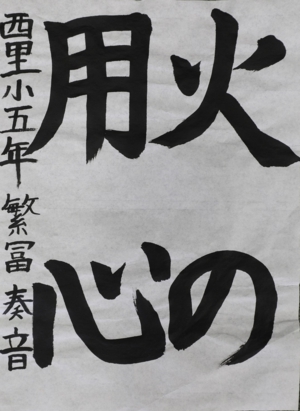 火の
用心
西里小五年 繁冨奏音